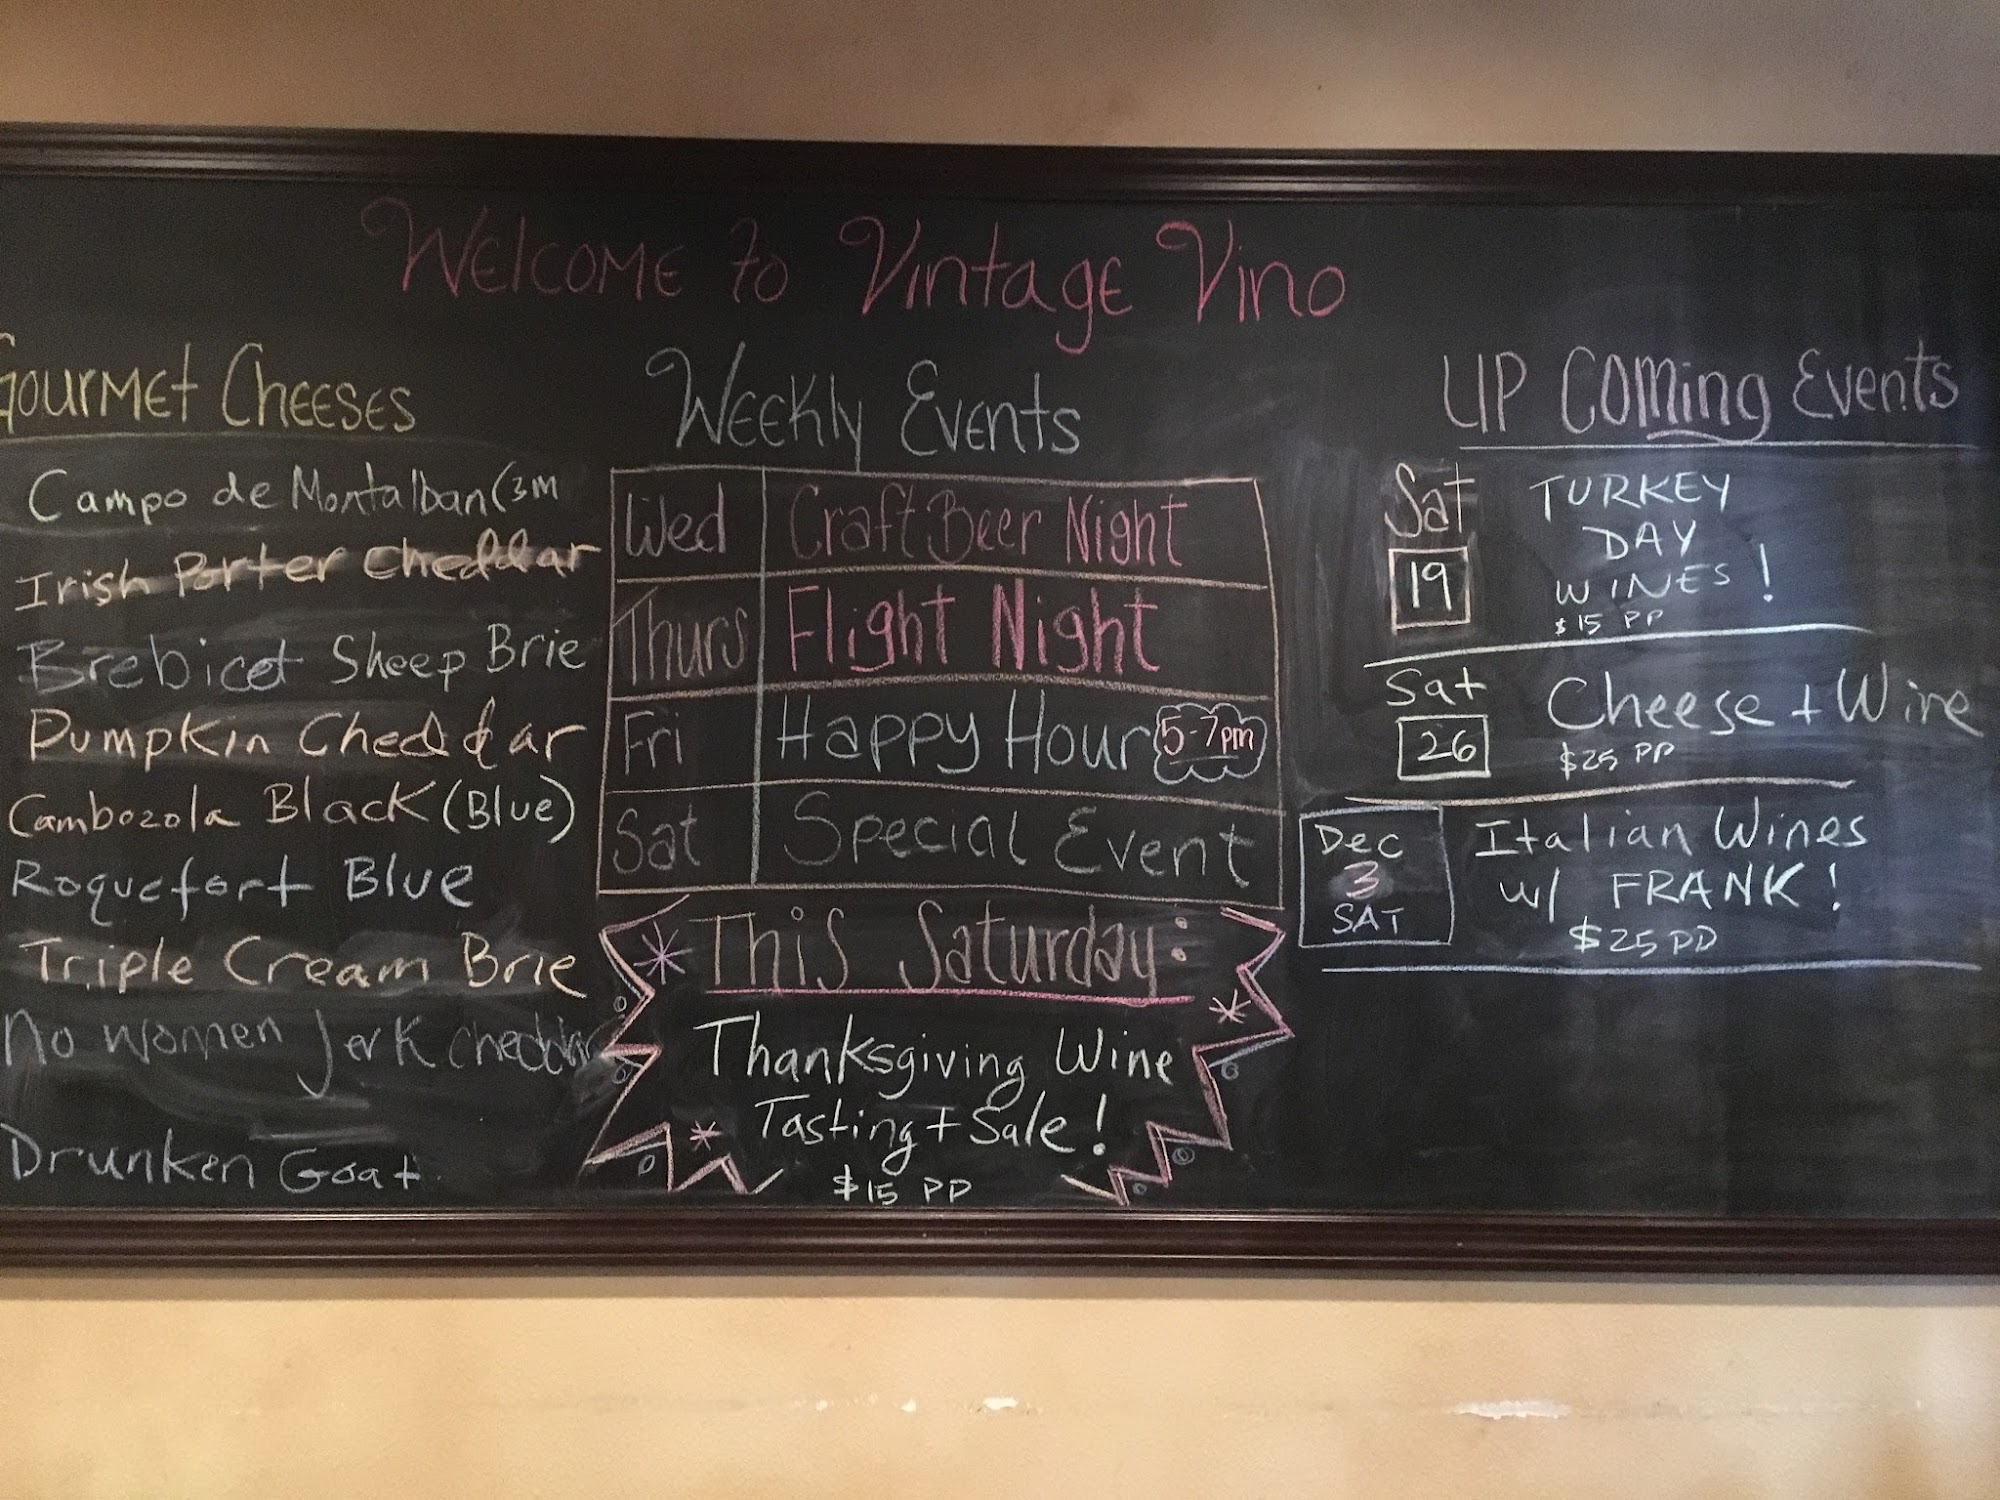 Welcome to Vintage Vino
Gourmet Cheeses
Campo de Montalban (3M
Irish Porter Cheddar
Brebicet Sheep Brie
Pumpkin Cheddar
Cambozola Black (Blue)
Roquefort Blue
Triple Cream Brie
No women Jerk Cheddar
Drunken Goat
Weekly Events
Wed Craft Beer Night
Thurs Flight Night
Fri Happy Hour 5-7pm
Sat Special Event
This Saturday:
Thanksgiving Wine
Tasting + Sale!
$15 PP
UP Coming Events
Sat
19
TURKEY
DAY
WINES!
$15 PP
Sat
26
Cheese + Wine
$25 PP
Dec
3
SAT
Italian Wines
w/ FRANK!
$25 PP